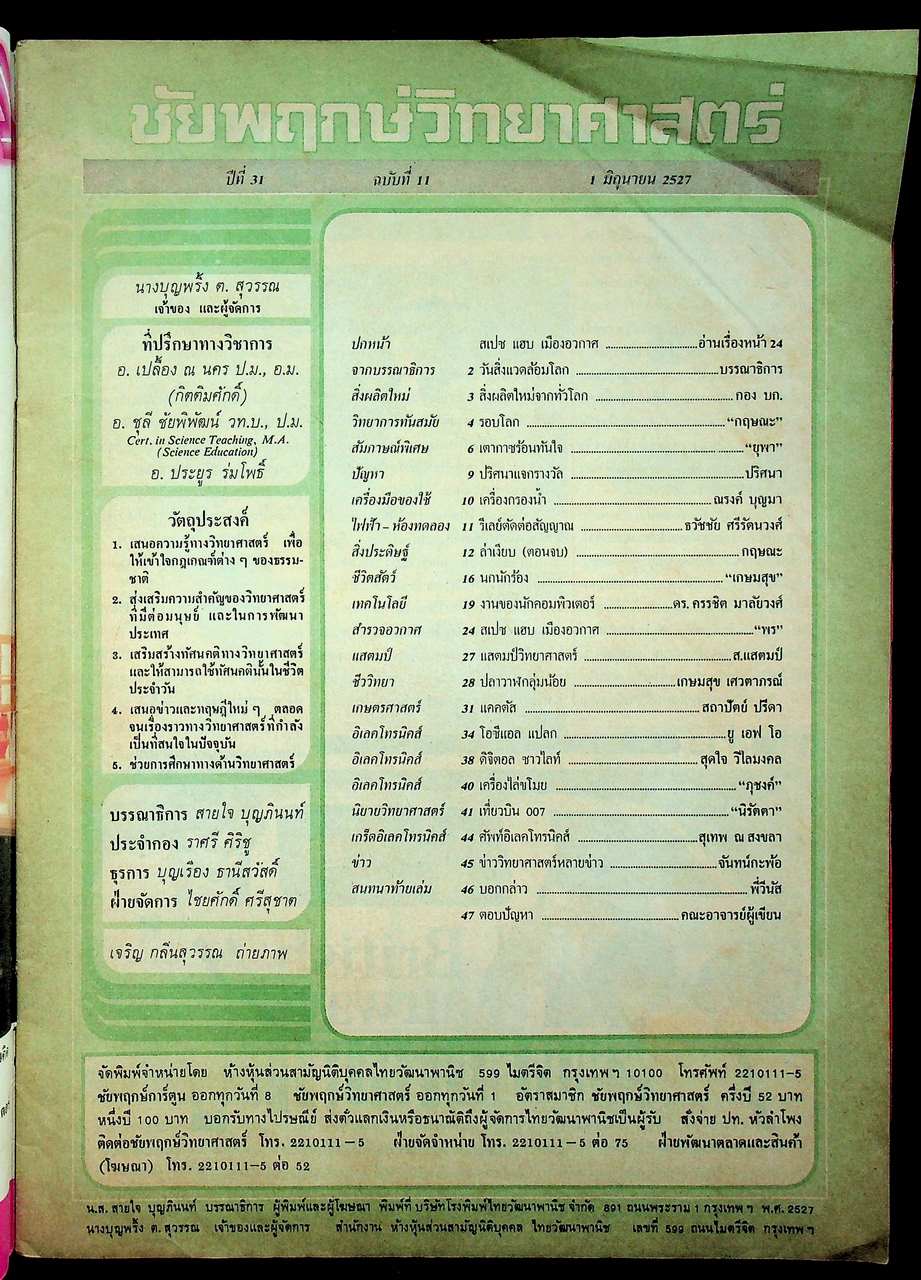 ชัยพฤกษ์วิทยาศาสตร์
ปีที่ 31 ฉบับที่ 11 1 มิถุนายน 2527
นางบุญพริ้ง ต. สุวรรณ
เจ้าของ และผู้จัดการ
ที่ปรึกษาทางวิชาการ
อ. เปลื้อง ณ นคร ป.ม., อ.ม.
(กิตติมศักดิ์)
อ. ชุลี ชัยพิพัฒน์ วท.บ., ป.ม.
Cert. in Science Teaching, M.A.
(Science Education)
อ. ประยูร ร่มโพธิ์
วัตถุประสงค์
1. เสนอความรู้ทางวิทยาศาสตร์ เพื่อ
ให้เข้าใจกฎเกณฑ์ต่าง ๆ ของธรรม-
ชาติ
2. ส่งเสริมความสำคัญของวิทยาศาสตร์
ที่มีต่อมนุษย์ และในการพัฒนา
ประเทศ
3. เสริมสร้างทัศนคติทางวิทยาศาสตร์
และให้สามารถใช้ทัศนคตินั้นในชีวิต
ประจำวัน
4. เสนอข่าวและทฤษฎีใหม่ ๆ ตลอด
จนเรื่องราวทางวิทยาศาสตร์ที่กำลัง
เป็นที่สนใจในปัจจุบัน
5. ช่วยการศึกษาทางด้านวิทยาศาสตร์
บรรณาธิการ สายใจ บุญภินนท์
ประจำกอง ราศรี ศิริชู
ธุรการ บุญเรือง ธานีสวัสดิ์
ฝ่ายจัดการ ไชยศักดิ์ ศรีสุชาต
เจริญ กลิ่นสุวรรณ ถ่ายภาพ
ปกหน้า สเปซ แฮบ เมืองอวกาศ ........ อ่านเรื่องหน้า 24
จากบรรณาธิการ 2 วันสิ่งแวดล้อมโลก ........ บรรณาธิการ
สิ่งผลิตใหม่ 3 สิ่งผลิตใหม่จากทั่วโลก ........ กอง บก.
วิทยาการทันสมัย 4 รอบโลก ........ "กฤษณะ"
สัมภาษณ์พิเศษ 6 เตากาซร้อนทันใจ ........ "ยุพา"
ปัญหา 9 ปริศนาแจกรางวัล ........ ปริศนา
เครื่องมือของใช้ 10 เครื่องกรองน้ำ ........ ณรงค์ บุญมา
ไฟฟ้า – ห้องทดลอง 11 รีเลย์ตัดต่อสัญญาณ ........ ธวัชชัย ศรีรัตนวงศ์
สิ่งประดิษฐ์ 12 ล่าเงียบ (ตอนจบ) ........ กฤษณะ
ชีวิตสัตว์ 16 นกนักร้อง ........ "เกษมสุข"
เทคโนโลยี 19 งานของนักคอมพิวเตอร์ ........ ดร. ครรชิต มาลัยวงศ์
สำรวจอวกาศ 24 สเปซ แฮบ เมืองอวกาศ ........ "พร"
แสตมป์ 27 แสตมป์วิทยาศาสตร์ ........ ส.แสตมป์
ชีววิทยา 28 ปลาวาฬกลุ่มน้อย ........ เกษมสุข เศวตาภรณ์
เกษตรศาสตร์ 31 แคคตัส ........ สถาปัตย์ ปรีดา
อิเลคโทรนิคส์ 34 โอซีแอล แปลก ........ ยู เอฟ โอ
อิเลคโทรนิคส์ 38 ดิจิตอล ซาวไลท์ ........ สุดใจ วิไลมงคล
อิเลคโทรนิคส์ 40 เครื่องไล่ขโมย ........ "ภุชงค์"
นิยายวิทยาศาสตร์ 41 เที่ยวบิน 007 ........ "นิรัตตา"
เกร็ดอิเลคโทรนิคส์ 44 ศัพท์อิเลคโทรนิคส์ ........ สุเทพ ณ สงขลา
ข่าว 45 ข่าววิทยาศาสตร์หลายข่าว ........ จันทน์กะพ้อ
สนทนาท้ายเล่ม 46 บอกกล่าว ........ พี่วีนัส
47 ตอบปัญหา ........ คณะอาจารย์ผู้เขียน
จัดพิมพ์จำหน่ายโดย ห้างหุ้นส่วนสามัญนิติบุคคลไทยวัฒนาพานิช 599 ไมตรีจิต กรุงเทพฯ 10100 โทรศัพท์ 2210111–5
ชัยพฤกษ์การ์ตูน ออกทุกวันที่ 8 ชัยพฤกษ์วิทยาศาสตร์ ออกทุกวันที่ 1 อัตราสมาชิก ชัยพฤกษ์วิทยาศาสตร์ ครึ่งปี 52 บาท
หนึ่งปี 100 บาท บอกรับทางไปรษณีย์ ส่งตั๋วแลกเงินหรือธนาณัติถึงผู้จัดการไทยวัฒนาพานิชเป็นผู้รับ สั่งจ่าย ปท. หัวลำโพง
ติดต่อชัยพฤกษ์วิทยาศาสตร์ โทร. 2210111 – 5 ฝ่ายจัดจำหน่าย โทร. 2210111 – 5 ต่อ 75 ฝ่ายพัฒนาตลาดและสินค้า
(โฆษณา) โทร. 2210111–5 ต่อ 52
น.ส. สายใจ บุญภินนท์ บรรณาธิการ ผู้พิมพ์และผู้โฆษณา พิมพ์ที่ บริษัทโรงพิมพ์ไทยวัฒนาพานิช จำกัด 891 ถนนพระราม 1 กรุงเทพฯ พ.ศ. 2527
นางบุญพริ้ง ต. สุวรรณ เจ้าของและผู้จัดการ สำนักงาน ห้างหุ้นส่วนสามัญนิติบุคคล ไทยวัฒนาพานิช เลขที่ 599 ถนนไมตรีจิต กรุงเทพฯ